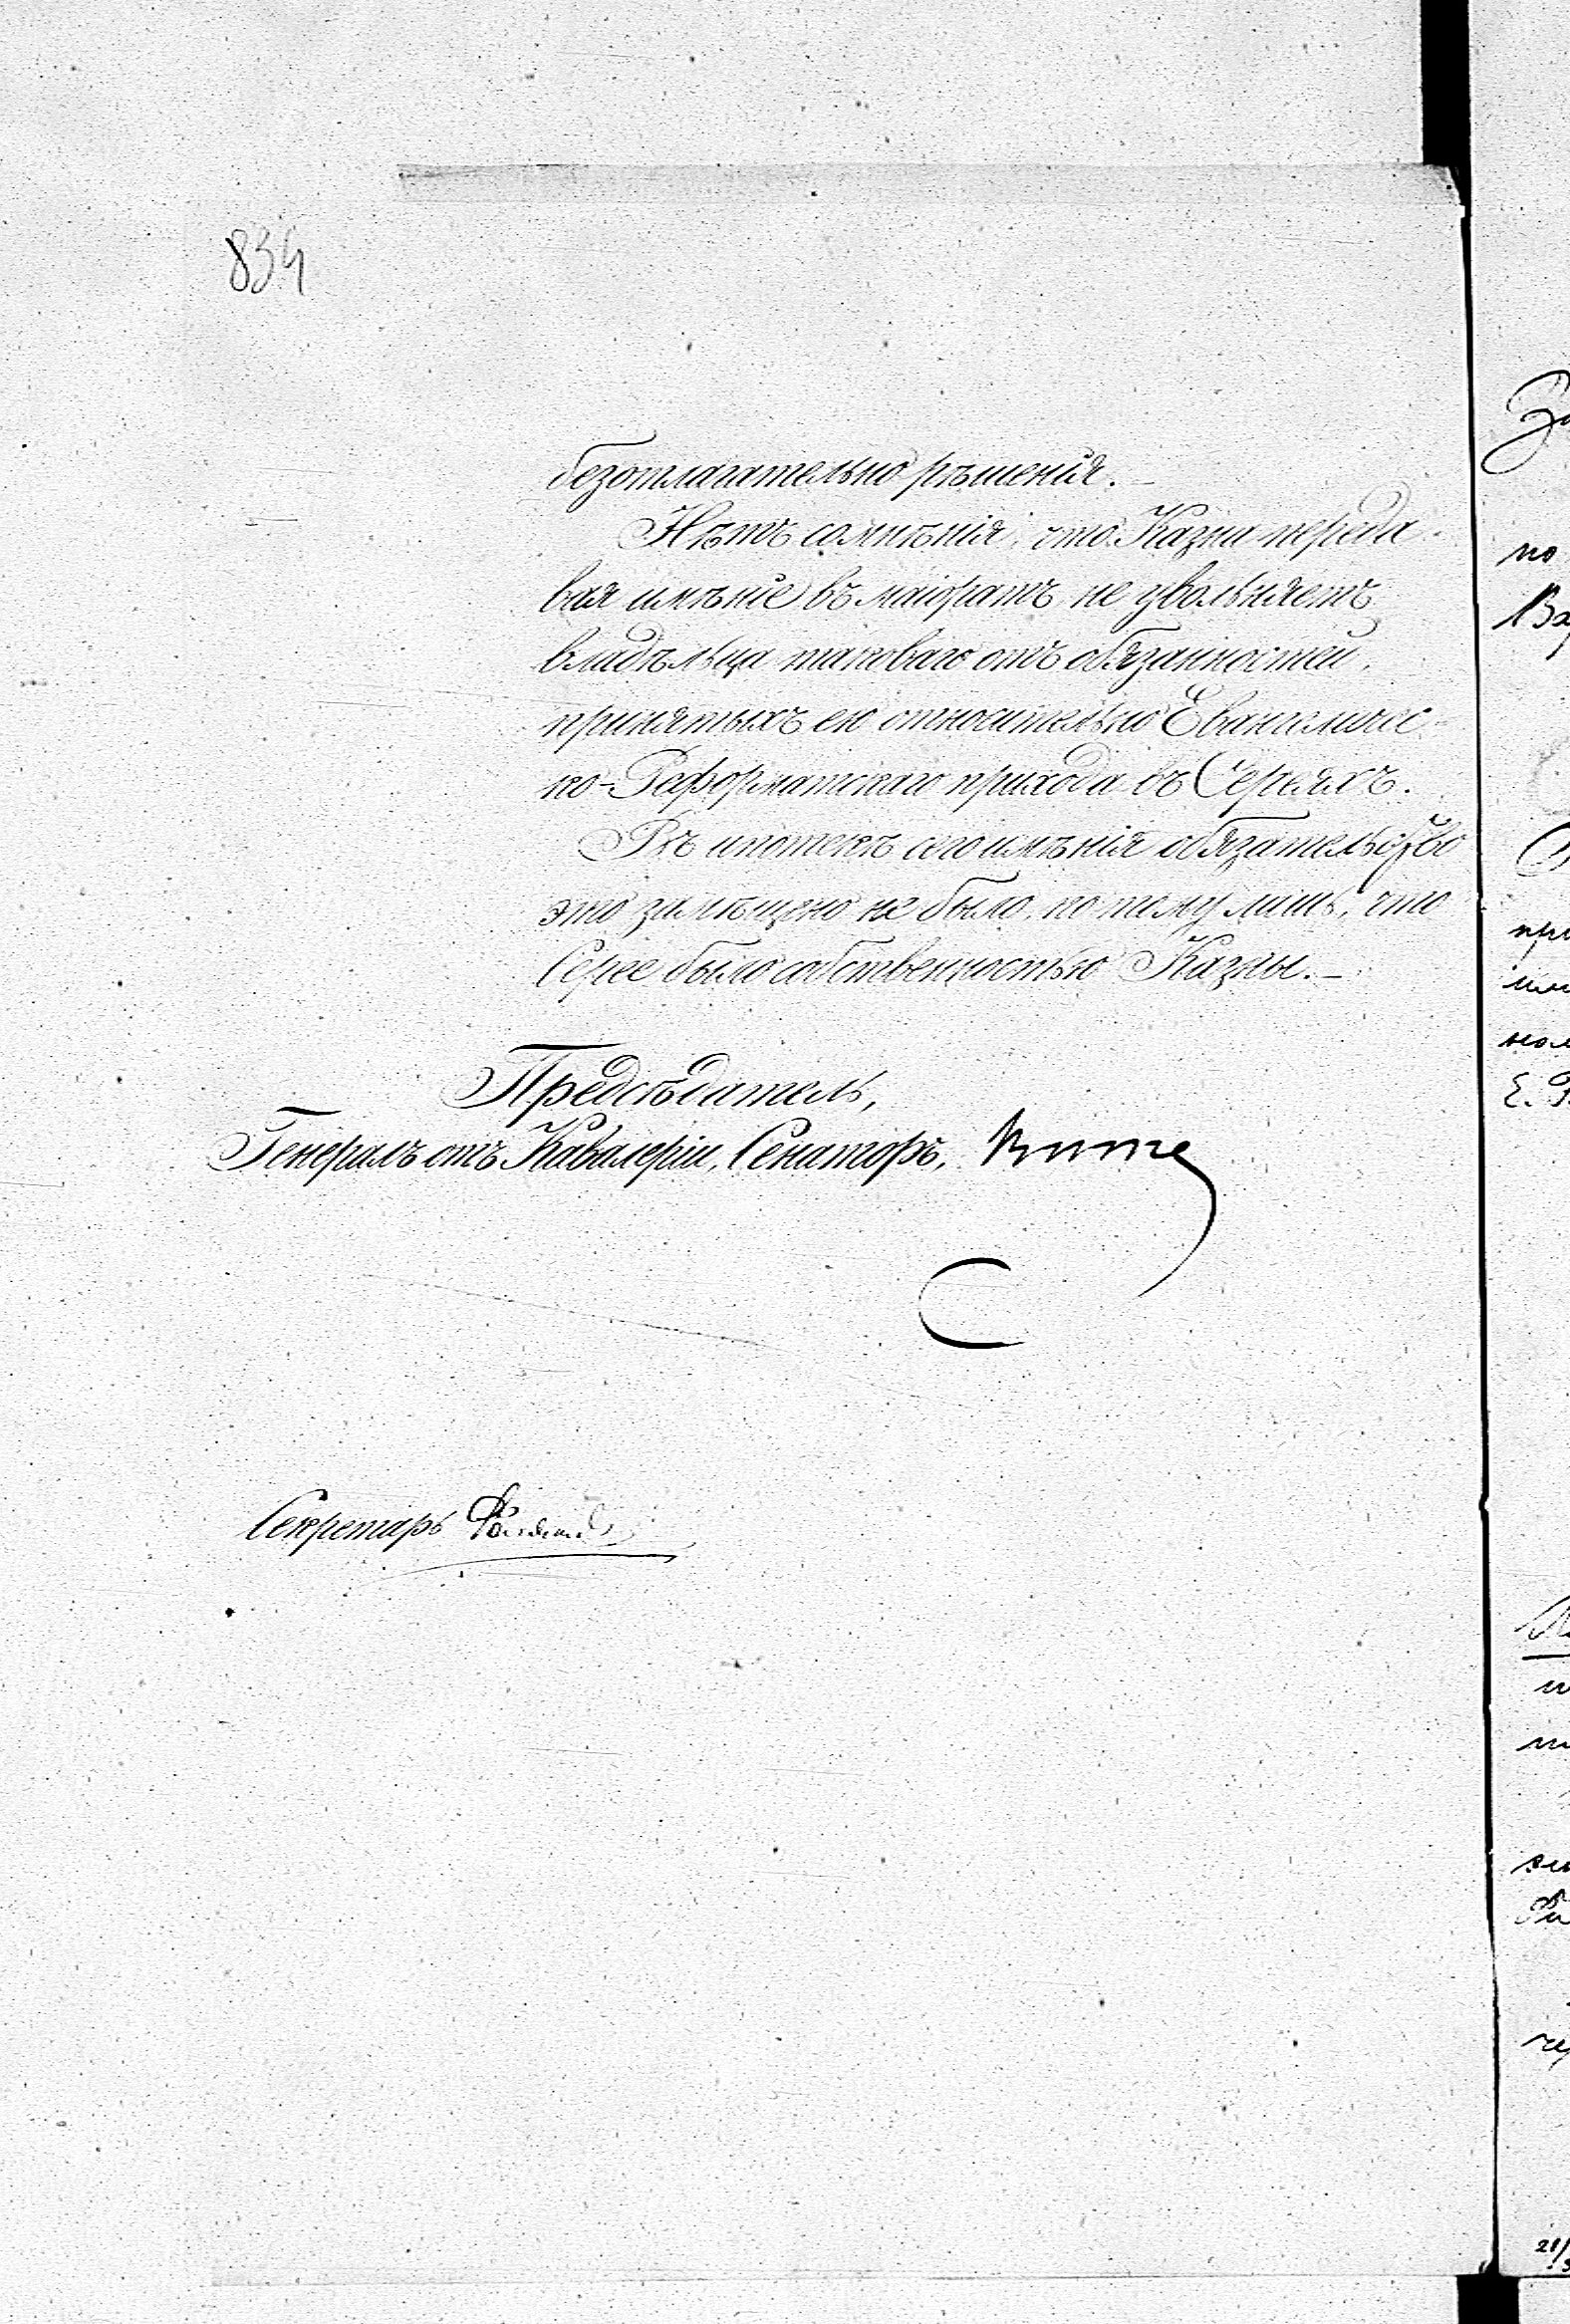 834
безотлагательно рѣшенія.—
Нѣтъ сомнѣнія, что Казна переда
вая имѣніе въ маіоратъ, не увольняетъ
владѣльца таковаго отъ обязанностей,
принятыхъ ею относительно Евангеличес
ко-Реформатскаго прихода въ Сереяхъ.
Въ ипотекѣ сего имѣнія обязательство
это замѣщено не было, потому лишь, что
Серее было собственностью Казны.—
Предсѣдатель,
Генералъ отъ Кавалеріи, Сенаторъ, Витте
Секретарь